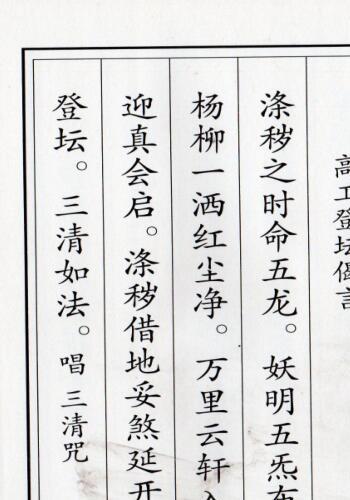 高工登坛偈言
涤秽之时命五龙。妖明五炁
杨柳一洒红尘净。万里云轩
迎真会启。涤秽借地妥煞延开
登坛。三清如法。唱 三清咒